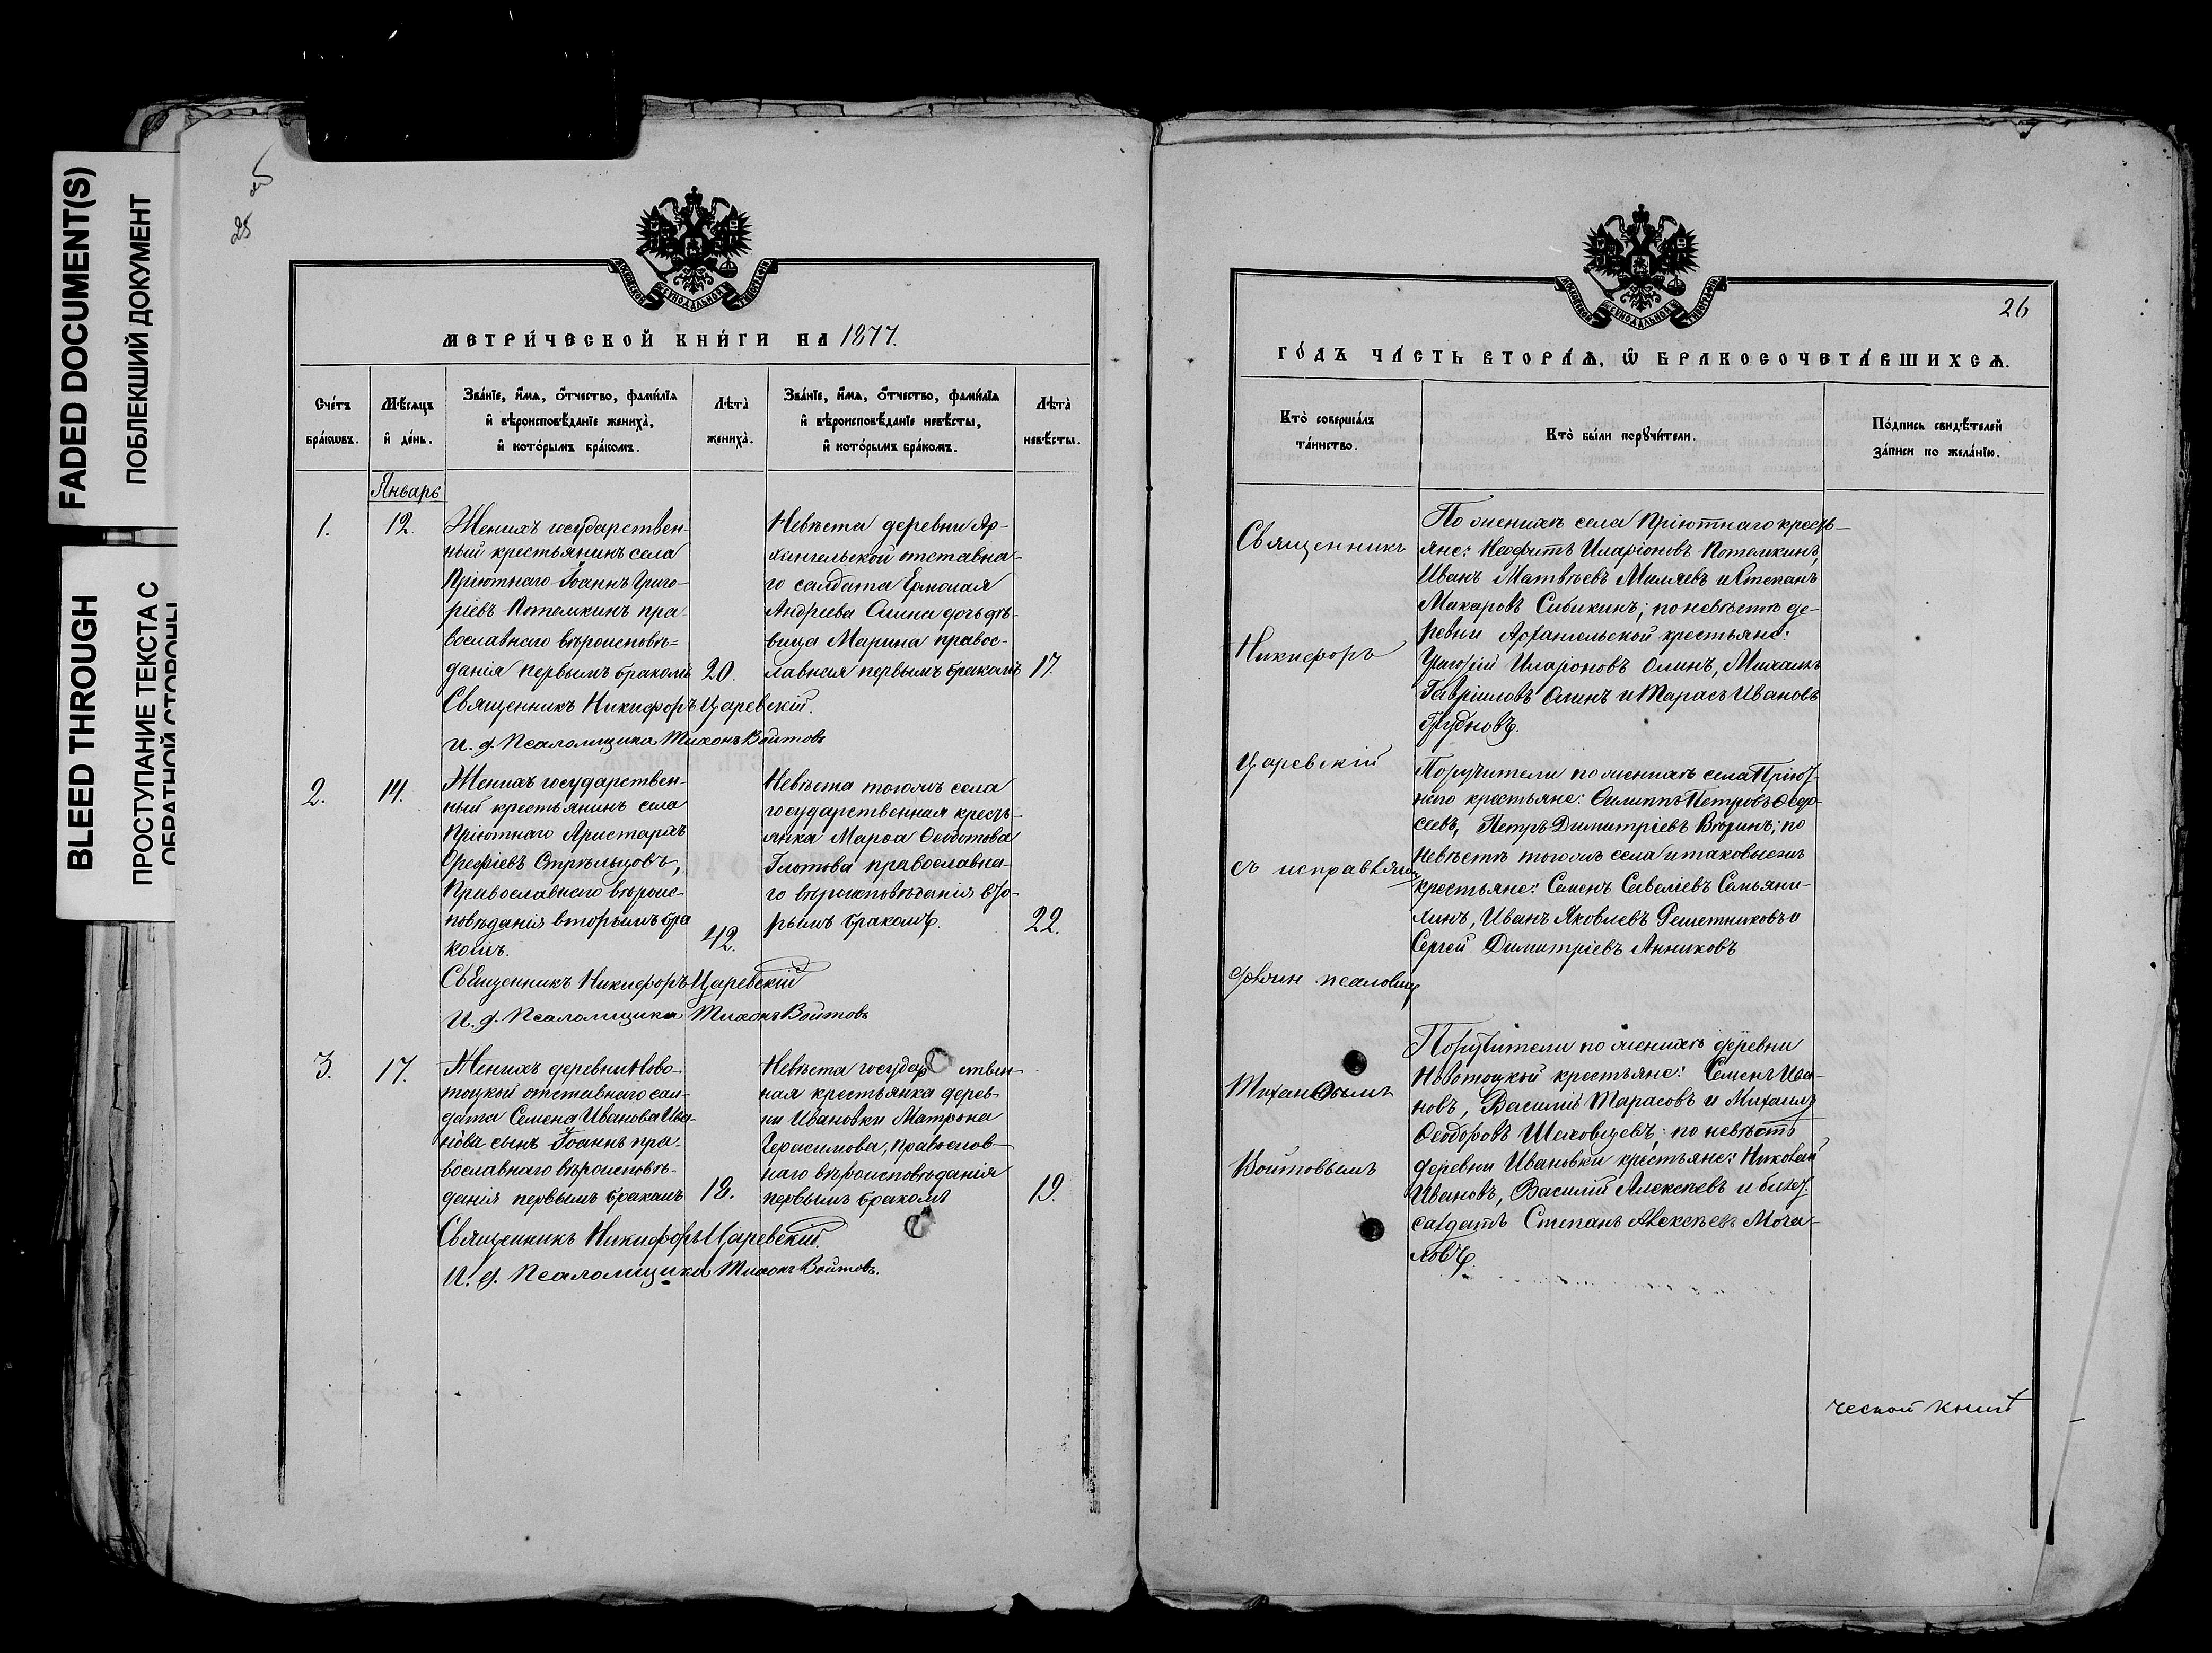 FADED DOCUMENT(S)
ПОБЛЕКШИЙ ДОКУМЕНТ
BLEED THROUGH
ПРОСТУПАНИЕ ТЕКСТА С
ОБРАТНОЙ СТОРОНЫ
МОСКОВСКОЙ СѴНОДАЛЬНОЙ ТИПОГРАФІИ
МЕТРИ́ЧЕСКОЙ КНИ́ГИ НА 1877.
Сче́тъ бра́кωвъ.
Мѣ́сяцъ и҆ де́нь.
Зва́нїе, и҆́мѧ, ѻ҆́тчество, фами́лїѧ
и҆ вѣроисповѣ́данїе жениха̀,
и҆ кото́рымъ бра́комъ.
Лѣта̀ жениха̀.
Зва́нїе, и҆́мѧ, ѻ҆́тчество, фами́лїѧ
и҆ вѣроисповѣ́данїе невѣ́сты,
и҆ кото́рымъ бра́комъ.
Лѣта̀ невѣ́сты.
Январь
1.
12.
Женихъ государствен-
ный крестьянинъ села
Пріютнаго Іоаннъ Григо-
ріевъ Потемкинъ пра-
вославнаго вѣроисповѣ-
данія первымъ бракомъ
20.
Невѣста деревни Ар-
хангельской отставна-
го салдата Ермолая
Андреева Олина дочь дѣ-
вица Марина правос-
лавная первымъ бракомъ
17.
Священникъ Никифоръ Царевскій.
и. д. Псаломщика Тихонъ Войтовъ
2.
14.
Женихъ государствен-
ный крестьянинъ села
Пріютнаго Аристархъ
Орефіевъ Стрѣльцовъ,
Православнаго вѣроис-
повѣданія вторымъ бра
комъ.
42.
Невѣста тогожъ села
государственная кресть-
янка Марѳа Ѳедотова
Глотова православна-
го вѣроисповѣданія вто-
рымъ бракомъ.
22.
Священникъ Никифоръ Царевскій
И. д. Псаломщика Тихонъ Войтовъ
3.
17.
Женихъ деревни Ново-
тоцкой отставнаго сал-
дата Семена Иванова Ива-
нова сынъ Іоаннъ пра-
вославнаго вѣроисповѣ-
данія первымъ бракомъ
18.
Невѣста государ ствен
ная крестьянка дерев-
ни Ивановки Матрона
Герасимова, Православ-
наго вѣроисповѣданія
первымъ бракомъ
19.
Священникъ Никифоръ Царевскій.
И. д. Псаломщика Тихонъ Войтовъ.
МОСКОВСКОЙ СѴНОДАЛЬНОЙ ТИПОГРАФІИ
26
ГО́ДЪ ЧА́СТЬ ВТОРА́Ѧ, Ѽ БРАКОСОЧЕТА́ВШИХСѦ.
Кто̀ соверша́лъ
та́инство.
Кто̀ бы́ли порꙋчи́тели.
По́дпись свидѣ́телей
за́писи по жела́нїю.
Священникъ
Никифоръ
Царевскій
съ исправляю
псаломщ
Тихономъ
Войтовымъ
По женихѣ села Пріютнаго кресть-
яне: Неофитъ Иларіоновъ Потемкинъ,
Иванъ Матвѣевъ Миляевъ и Степанъ
Макаровъ Сибикинъ; по невѣстѣ де-
ревни Архангельской крестьяне:
Григорій Иларіоновъ Олинъ, Михаилъ
Гавріиловъ Олинъ и Тарасъ Ивановъ
Трудновъ.
Поручители по женихѣ села Пріют-
наго крестьяне: Филиппъ Петровъ Ѳедо-
сеевъ, Петръ Димитріевъ Вѣринъ; по
невѣстѣ тогожъ села и таковыежъ
крестьяне: Семенъ Савеліевъ Семьяни-
хинъ, Иванъ Яковлевъ Решетниковъ и
Сергей Димитріевъ Анниковъ
Поручители по женихѣ деревни
Новотоцкой крестьяне: Семенъ Ива-
новъ, Василій Тарасовъ и Михаилъ
Ѳеодоровъ Шаховцевъ; по невѣстѣ
деревни Ивановки крестьяне: Николай
Ивановъ, Василій Алексѣевъ и билет.
салдатъ Степанъ Алексѣевъ Моча-
ловъ.
ческой книг